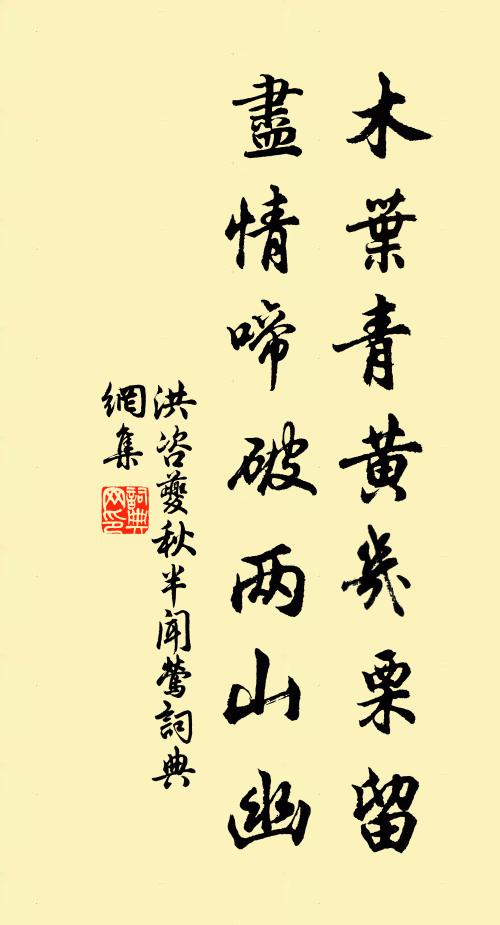 木葉青黄幾栗留
盡情啼破两山幽
洪咨夔秋半聞鶯詞典
網集
詞典网印